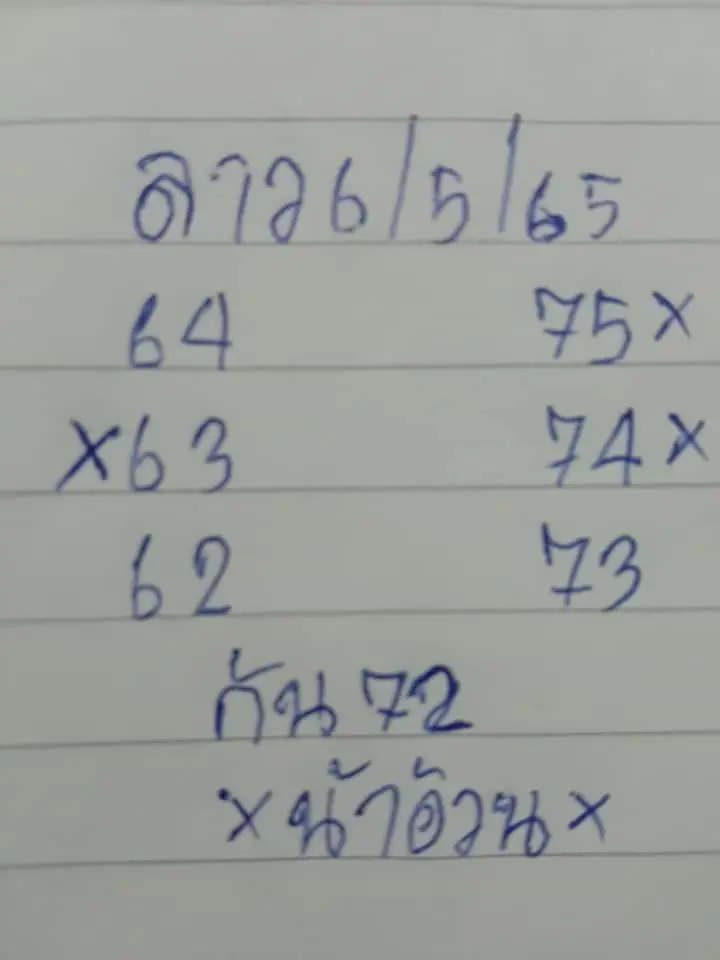 ลาว 6/5/65
64 75×
×63 74×
62 73
กัน 72
×น้าอ้วน×